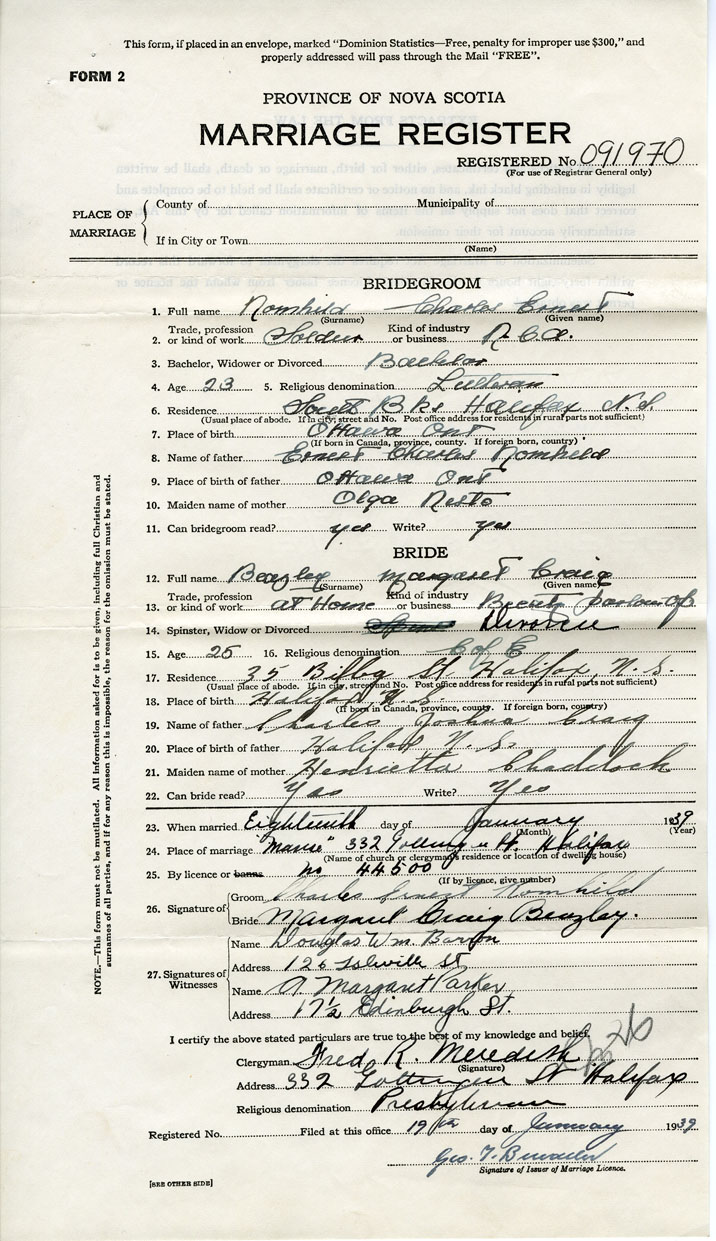 This form, if placed in an envelope, marked “Dominion Statistics—Free, penalty for improper use $300,” and
properly addressed will pass through the Mail “FREE”.
FORM 2
PROVINCE OF NOVA SCOTIA
MARRIAGE REGISTER
REGISTERED No. 091970
(For use of Registrar General only)
PLACE OF MARRIAGE
County of Municipality of
If in City or Town
(Name)
BRIDEGROOM
1. Full name Romhild Charles Ernest
(Surname) (Given name)
2. Trade, profession or kind of work Soldier Kind of industry or business R.C.A.
3. Bachelor, Widower or Divorced Bachelor
4. Age 23 5. Religious denomination Lutheran
6. Residence South Bks Halifax N.S.
(Usual place of abode. If in city, street and No. Post office address for residents in rural parts not sufficient)
7. Place of birth Ottawa Ont
(If born in Canada, province, county. If foreign born, country)
8. Name of father Ernest Charles Romhild
9. Place of birth of father Ottawa Ont
10. Maiden name of mother Olga Nesto
11. Can bridegroom read? yes Write? yes
BRIDE
12. Full name Beazley Margaret Craig
(Surname) (Given name)
13. Trade, profession or kind of work at Home Kind of industry or business Beauty parlour op
14. Spinster, Widow or Divorced Divorcee
15. Age 25 16. Religious denomination C of E
17. Residence 35 Bilby St Halifax, N.S.
(Usual place of abode. If in city, street and No. Post office address for residents in rural parts not sufficient)
18. Place of birth Halifax N.S.
(If born in Canada, province, county. If foreign born, country)
19. Name of father Charles Joshua Craig
20. Place of birth of father Halifax N.S.
21. Maiden name of mother Henrietta Chaddock
22. Can bride read? Yes Write? Yes
23. When married Eighteenth day of January 1939
(Month) (Year)
24. Place of marriage "Manse" 332 Gottingen St. Halifax
(Name of church or clergyman's residence or location of dwelling house)
25. By licence or banns no 44500
(If by licence, give number)
26. Signature of
Groom Charles Ernest Romhild
Bride Margaret Craig Beazley.
27. Signatures of Witnesses
Name Douglas Wm Barron
Address 126 St
Name A. Margaret Parker
Address 17½ Edinburgh St.
I certify the above stated particulars are true to the best of my knowledge and belief.
Clergyman Fred R. Meredith
(Signature)
Address 332 Gottingen St Halifax
Religious denomination Presbyterian
Registered No. Filed at this office 19th day of January 1939
Geo. T.
Signature of Issuer of Marriage Licence.
[SEE OTHER SIDE]
NOTE.—This form must not be mutilated. All information asked for is to be given, including full Christian and
surnames of all parties, and if for any reason this is impossible, the reason for the omission must be stated.